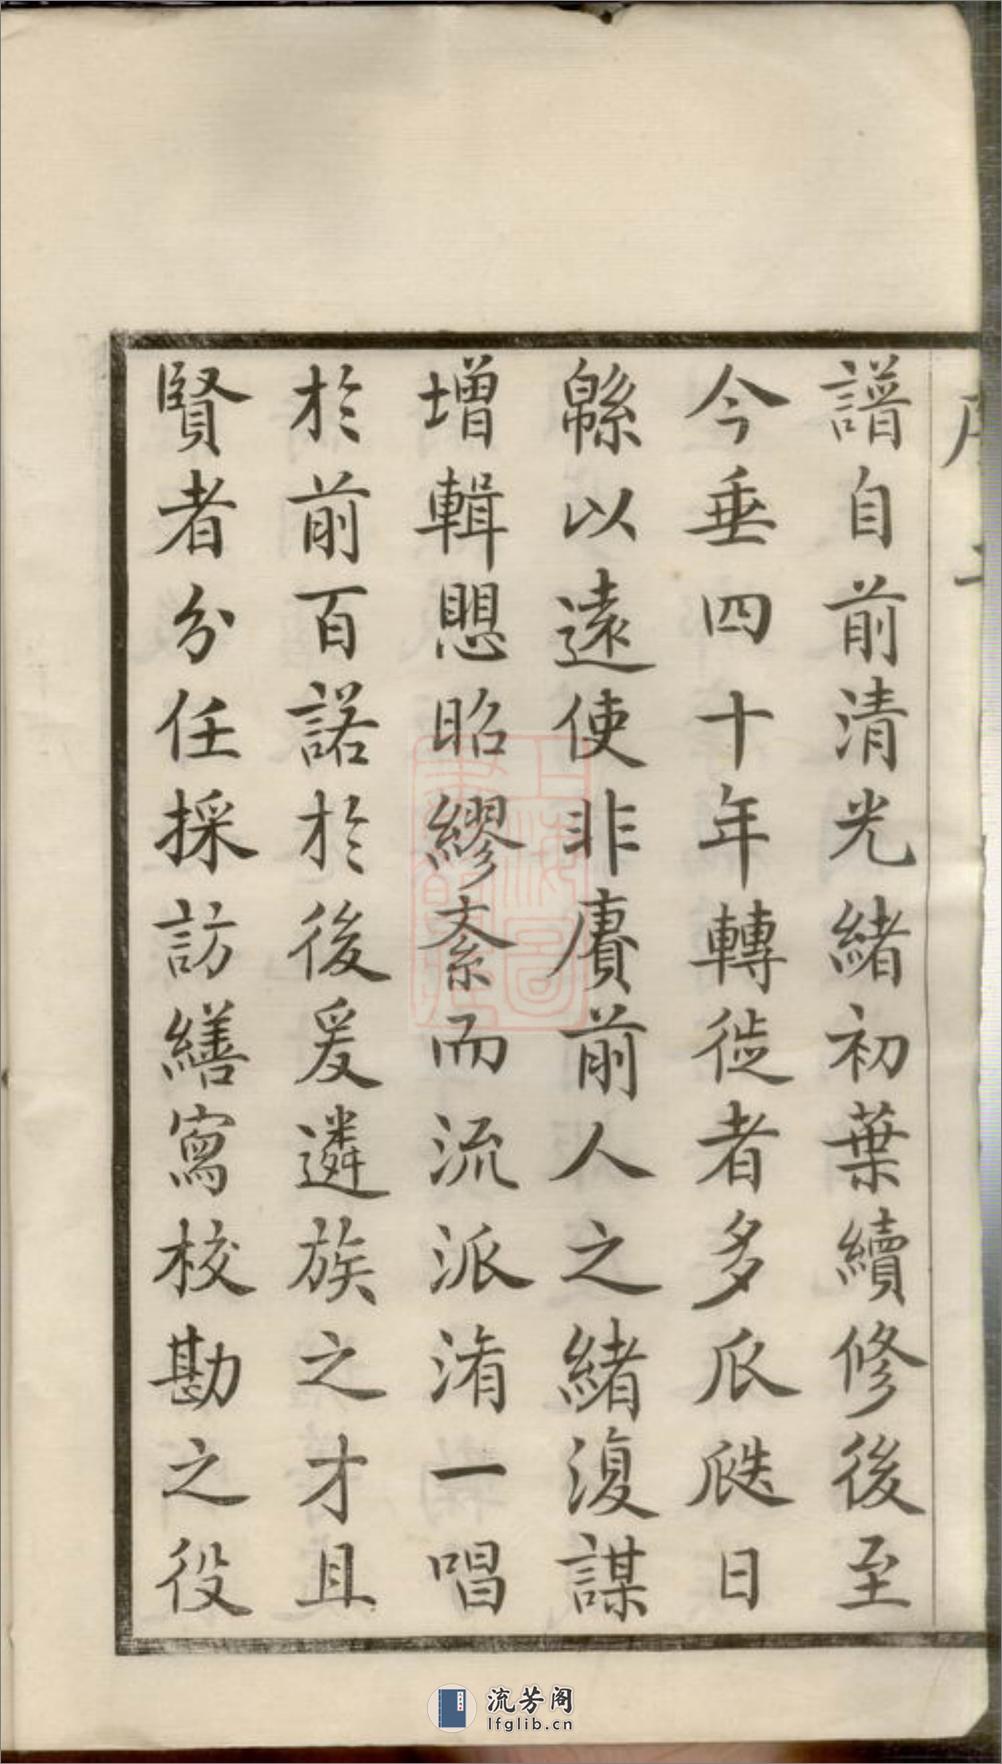 譜自前清光緒初葉續修後至
今垂四十年轉徙者多瓜瓞日
緜以遠使非賡前人之緒復謀
增輯愳昭繆紊而流派淆一唱
於前百諾於後爰遴族之才且
賢者分任採訪繕寫校勘之役
上海圖書館藏
流芳阁
lfglib.cn